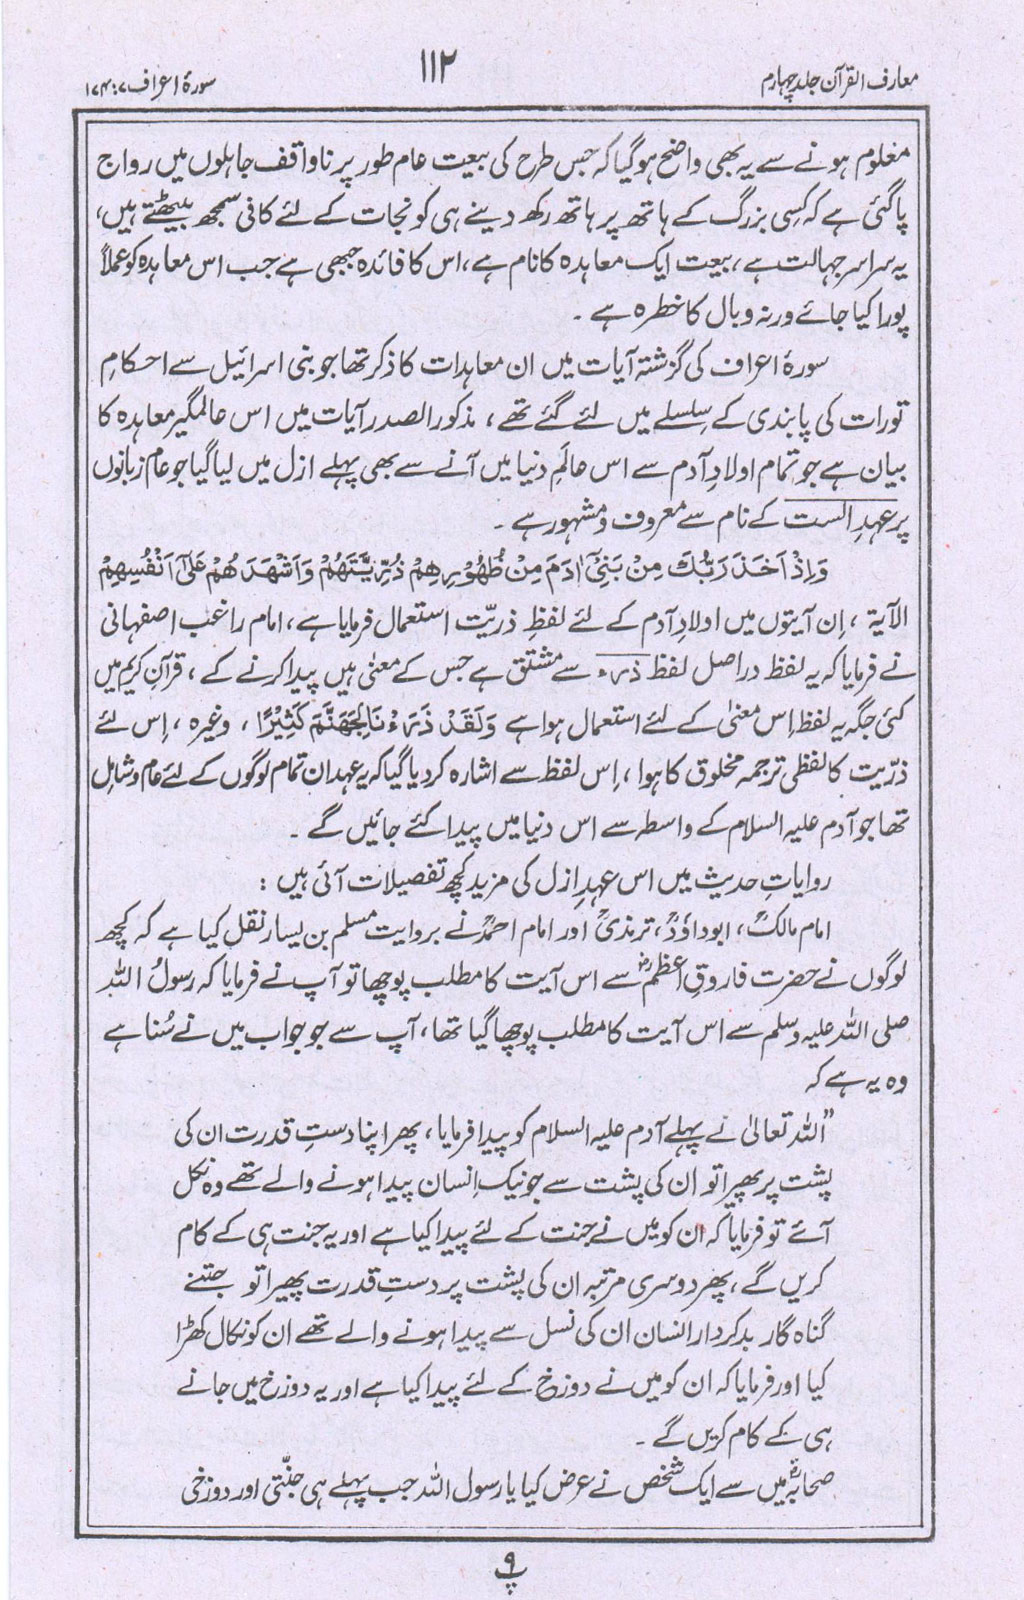 معارف القرآن جلد چہارم
۱۱۲
سورۂ اعراف ۷ : ۱۷۴
معلوم ہونے سے یہ بھی واضح ہوگیا کہ جس طرح کی بیعت عام طور پر ناواقف جاہلوں میں رواج
پاگئی ہے کہ کسی بزرگ کے ہاتھ پر ہاتھ رکھ دینے ہی کو نجات کے لئے کافی سمجھ بیٹھتے ہیں،
یہ سراسر جہالت ہے، بیعت ایک معاہدہ کا نام ہے، اس کا فائدہ جبھی ہے جب اس معاہدہ کو عملاً
پورا کیا جائے ورنہ وبال کا خطرہ ہے ۔
سورۂ اعراف کی گزشتہ آیات میں ان معاہدات کا ذکر تھا جو بنی اسرائیل سے احکامِ
تورات کی پابندی کے سِلسلے میں لئے گئے تھے، مذکور الصدر آیات میں اس عالمگیر معاہدہ کا
بیان ہے جو تمام اولادِ آدم سے اس عالَمِ دنیا میں آنے سے بھی پہلے ازل میں لیا گیا جو عام زبانوں
پر عہدِ الست کے نام سے معروف و مشہور ہے ۔
وَاِذْ اَخَذَ رَبُّكَ مِنْ بَنِيْٓ اٰدَمَ مِنْ ظُهُوْرِهِمْ ذُرِّيَّتَهُمْ وَاَشْهَدَهُمْ عَلٰٓى اَنْفُسِهِمْ
الآیۃ ، اِن آیتوں میں اولادِ آدم کے لئے لفظِ ذریّت استعمال فرمایا ہے، امام راغب اصفہانی
نے فرمایا کہ یہ لفظ دراصل لفظ ذرء سے مشتق ہے جس کے معنیٰ ہیں پیدا کرنے کے ، قرآن کریم میں
کئی جگہ یہ لفظ اِس معنیٰ کے لئے استعمال ہوا ہے وَلَقَدْ ذَرَءْنَا لِجَهَنَّمَ كَثِيْرًا ، وغیرہ ، اِس لئے
ذرّیت کا لفظی ترجمہ مخلوق کا ہوا ، اِس لفظ سے اشارہ کر دیا گیا کہ یہ عہد ان تمام لوگوں کے لئے عام و شامِل
تھا جو آدم علیہ السلام کے واسطہ سے اس دنیا میں پیدا کئے جائیں گے ۔
روایاتِ حدیث میں اس عہدِ ازل کی مزید کچھ تفصیلات آئی ہیں :
امام مالکؒ، ابوداؤدؒ، ترمذیؒ اور امام احمدؒ نے بروایت مسلم بن یسار نقل کیا ہے کہ کچھ
لوگوں نے حضرت فاروقِ اعظمؓ سے اس آیت کا مطلب پوچھا تو آپ نے فرمایا کہ رسولُ اللہ
صلی اللہ علیہ وسلم سے اس آیت کا مطلب پوچھا گیا تھا، آپ سے جو جواب میں نے سُنا ہے
وہ یہ ہے کہ
”اللہ تعالیٰ نے پہلے آدم علیہ السلام کو پیدا فرمایا، پھر اپنا دستِ قدرت ان کی
پشت پر پھیرا تو ان کی پشت سے جو نیک اِنسان پیدا ہونے والے تھے وہ نکل
آئے تو فرمایا کہ ان کو میں نے جنت کے لئے پیدا کیا ہے اور یہ جنت ہی کے کام
کریں گے، پھر دوسری مرتبہ ان کی پشت پر دستِ قدرت پھیرا تو جتنے
گناہ گار بدکردار انسان ان کی نسل سے پیدا ہونے والے تھے ان کو نکال کھڑا
کیا اور فرمایا کہ ان کو میں نے دوزخ کے لئے پیدا کیا ہے اور یہ دوزخ میں جانے
ہی کے کام کریں گے ۔
صحابہؓ میں سے ایک شخص نے عرض کیا یا رسول اللہ جب پہلے ہی جنّتی اور دوزخی
پ ۹